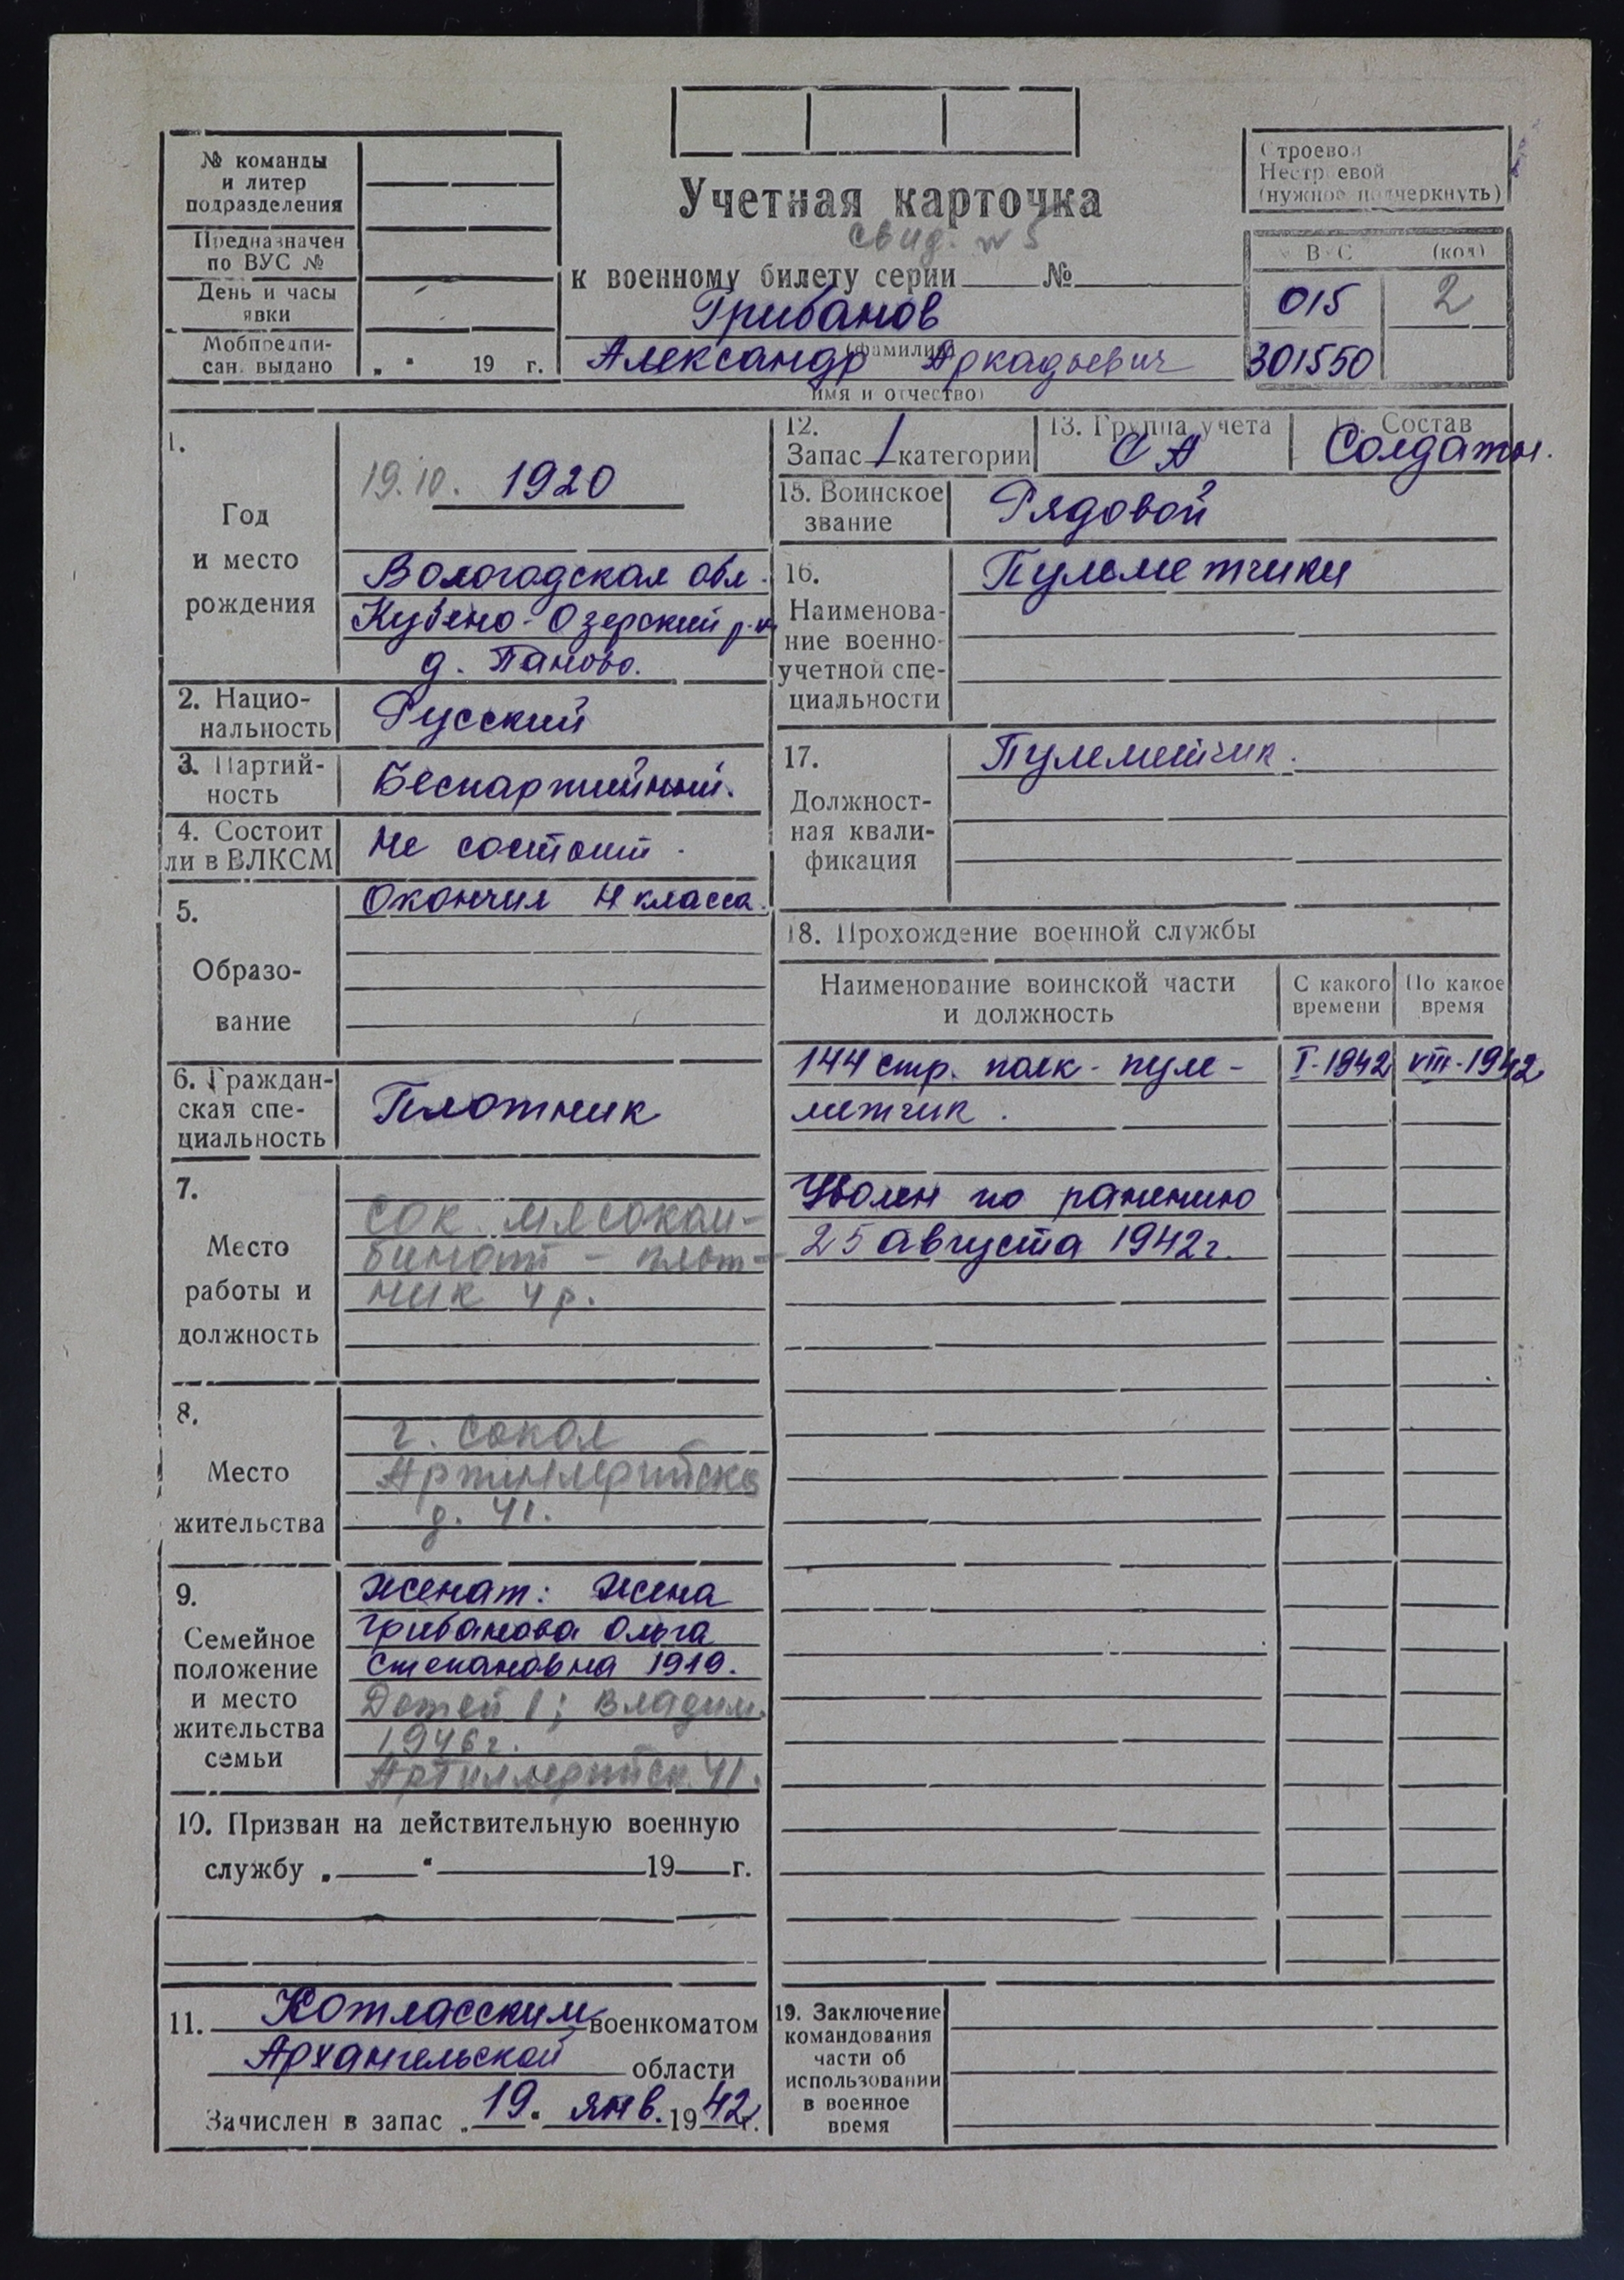 № команды
и литер
подразделения
Предназначен
по ВУС №
День и часы
явки
Мобпредпи-
сан. выдано „ “ 19 г.
Учетная карточка
свид. № 5
к военному билету серии № 
Грибанов
(фамилия)
Александр Аркадьевич
имя и отчество)
Строевой
Нестроевой
(нужное подчеркнуть)
ВУС (код)
015 2
301550
1.
Год
и место
рождения
19.10. 1920
Вологодская обл.
Кубено-Озерский р-н
д. Паново.
2. Нацио-
нальность
Русский
3. Партий-
ность
Беспартийный.
4. Состоит
ли в ВЛКСМ
Не состоит.
5.
Образо-
вание
Окончил 4 класса.
6. Граждан-
ская спе-
циальность
Плотник
7.
Место
работы и
должность
Сок. мясоком-
бинат - плот-
ник 4 р.
8.
Место
жительства
г. Сокол
Артиллерийска
д. 41.
9.
Семейное
положение
и место
жительства
семьи
женат: жена
Грибанова Ольга
Степановна 1919.
Детей 1; Владим.
1946 г.
Артиллерийск. 41.
10. Призван на действительную военную
службу „ “ 19 г.
11. Котласским военкоматом
Архангельской области
Зачислен в запас „19“ янв. 1942 г.
12.
Запас 1 категории
13. Группа учета
СА
Состав
Солдаты.
15. Воинское
звание
Рядовой
16.
Наименова-
ние военно-
учетной спе-
циальности
Пульметчики
17.
Должност-
ная квали-
фикация
Пулеметчик.
18. Прохождение военной службы
Наименование воинской части
и должность
С какого
времени
По какое
время
144 стр. полк - пуле- I-1942 VIII-1942
метчик.
Уволен по ранению
25 августа 1942 г.
19. Заключение
командования
части об
использовании
в военное
время